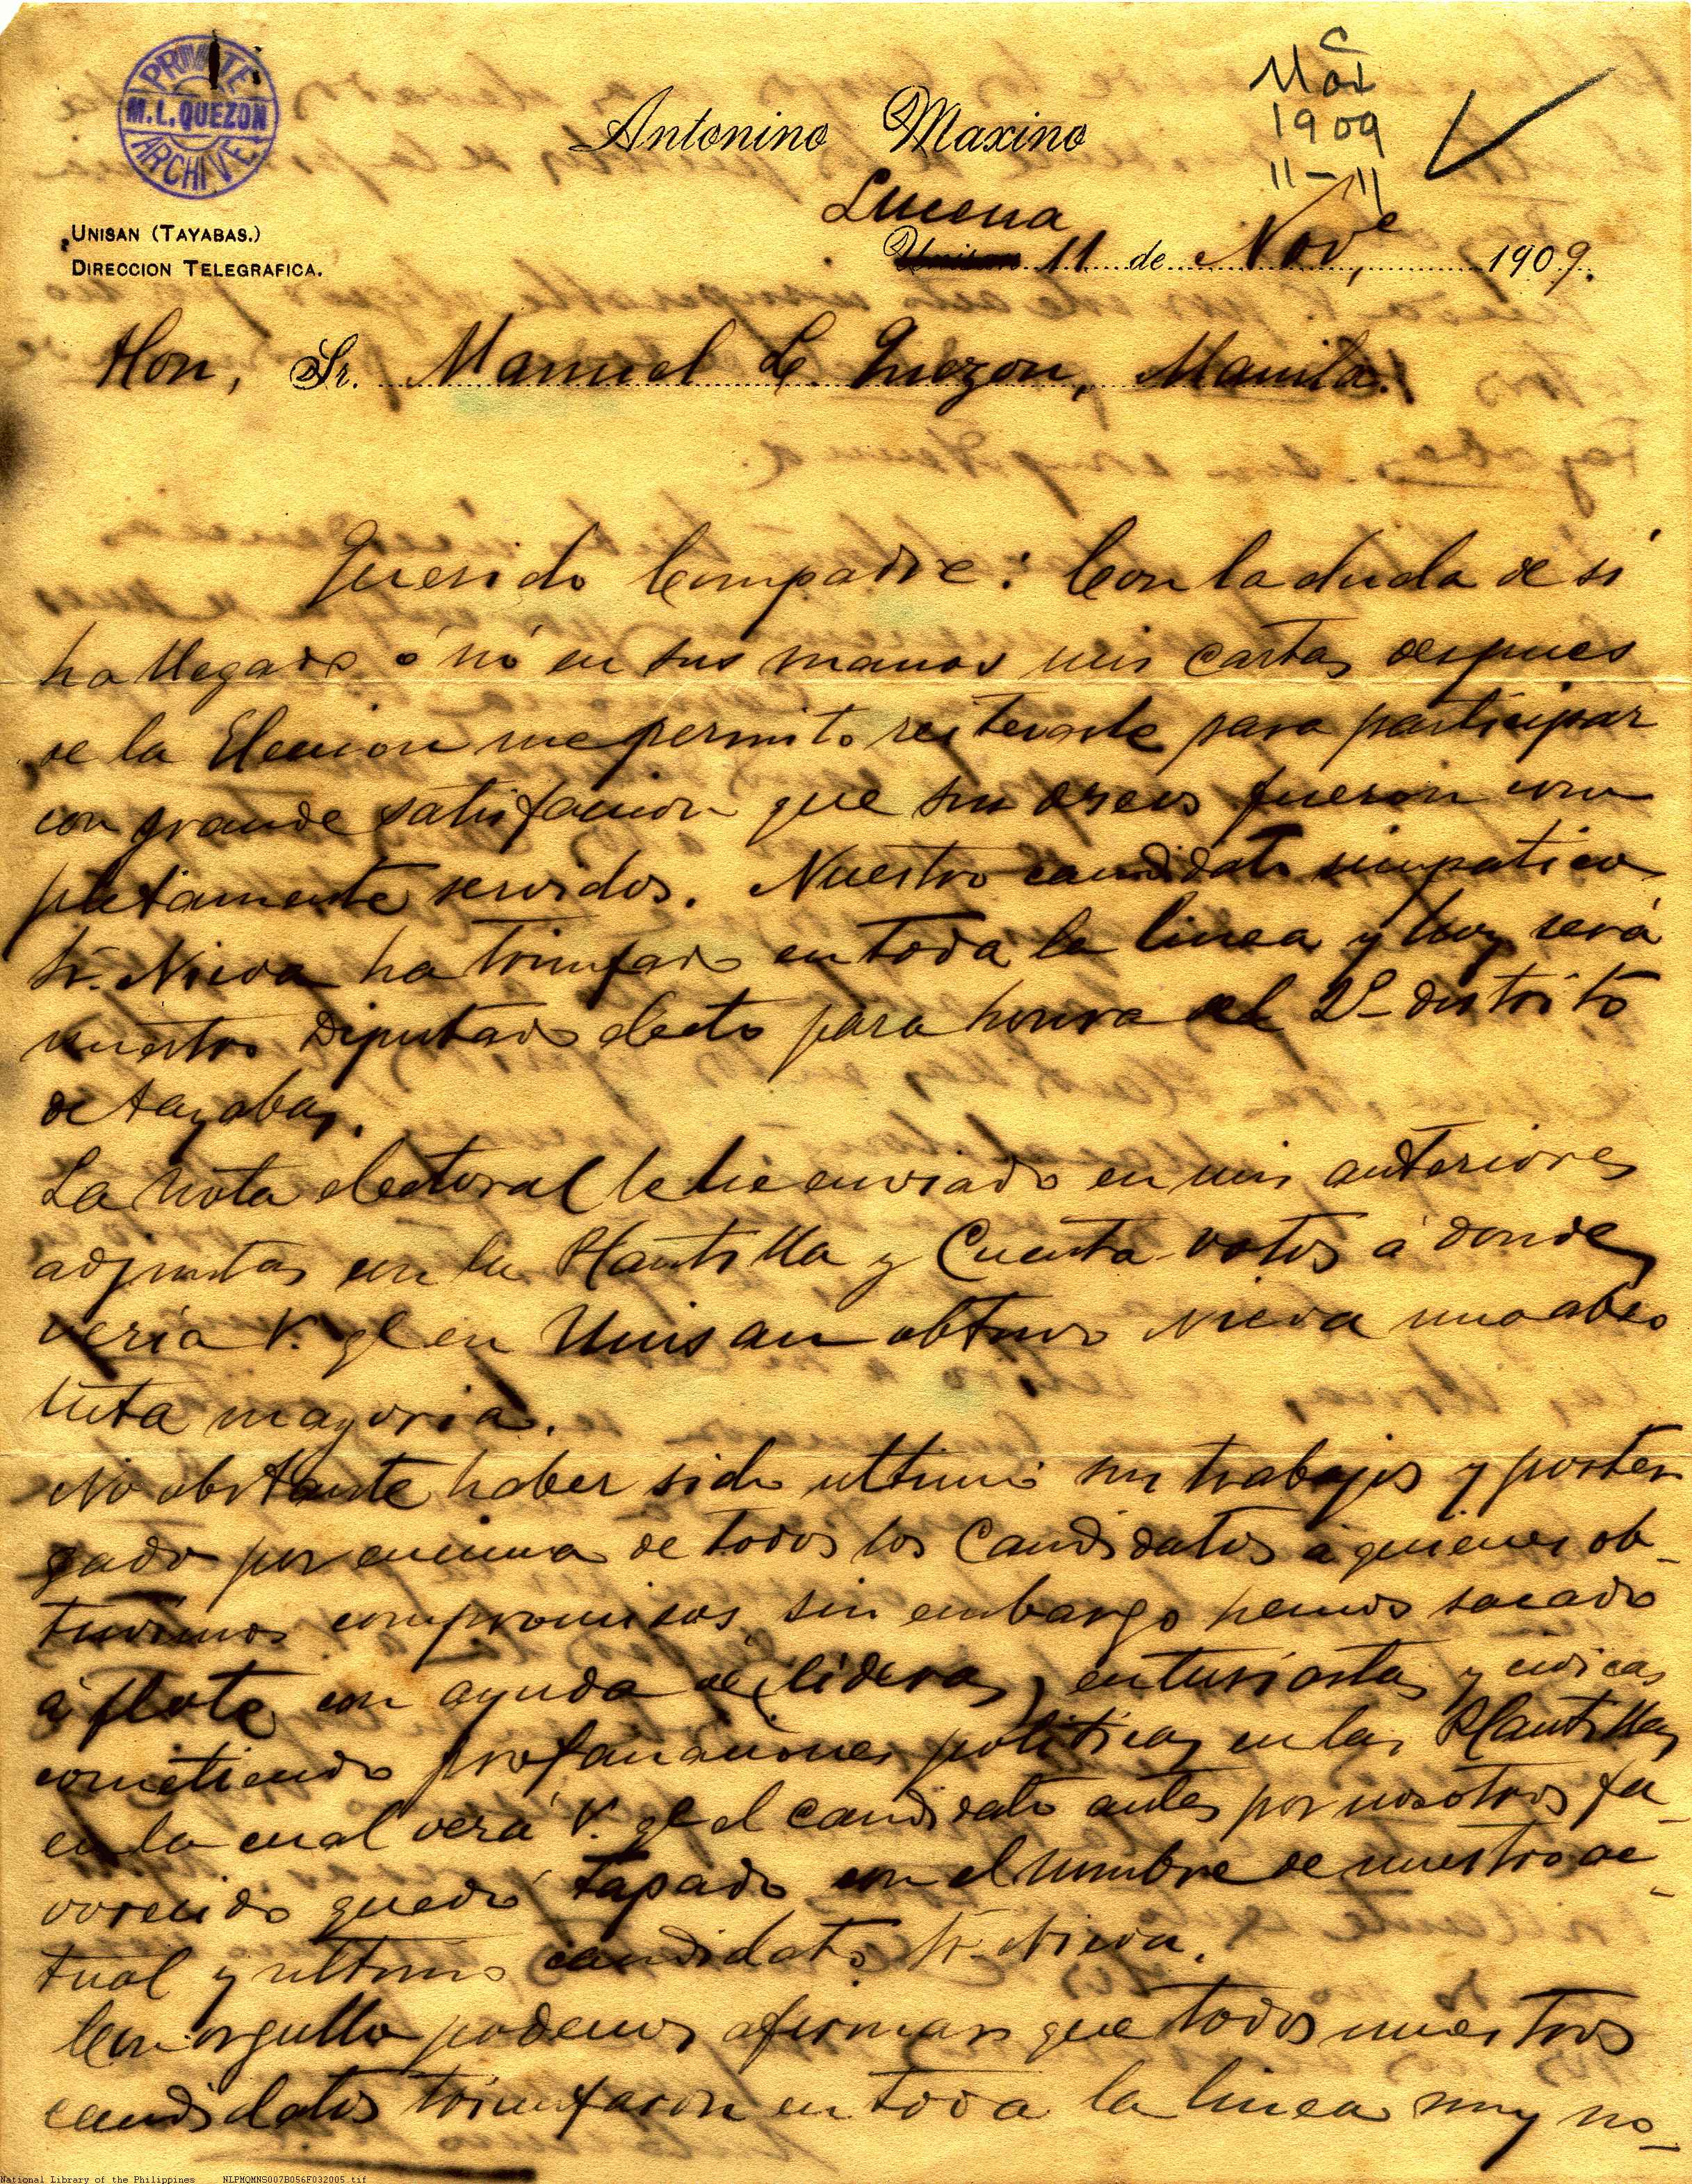 PRIVATE
M. L. QUEZON
ARCHIVE
Max
1909
11-11
Antonino Maximo
UNISAN (TAYABAS.)
DIRECCION TELEGRAFICA.
Lucena
Unisan 11 de Nov.e 1909.
Hon, Sr. Manuel L. Quezon, Manila.
Querido Compadre: Con la duda de si
ha llegado ó nó en sus manos mis cartas despues
de la Eleccion me permito reiterarle para participar
con grande satisfaccion que sus deseos fueron com
pletamente servidos. Nuestro candidato simpatico
Sr. Nieva ha triunfado en toda la linea y hoy será
nuestro Diputado electo para honra del 2o distrito
de Tayabas.
La nota electoral le he enviado en mis anteriores
adjuntas en la Plantilla y Cuenta votos á donde
veria V. qe en Unisan obtuvo Nieva una abso
luta mayoria.
No obstante haber sido ultimo sus trabajos y poster
gado por encima de todos los Candidatos á quienes ob-
tuvimos compromisos, sin embargo hemos sacado
á flote con ayuda de (lideres) entusiastas y civicas
cometiendo profanaciones politicas en las Plantillas
en la cual verá V. qe el candidato antes por nosotros fa-
vorecido quedó tapado con el nombre de nuestro ac-
tual y ultimo candidato Sr. Nieva.
Con orgullo podemos afirmar que todos nuestros
candidatos triunfaron en toda la linea muy no-
National Library of the Philippines NLPMQMNS007B056F032005.tif